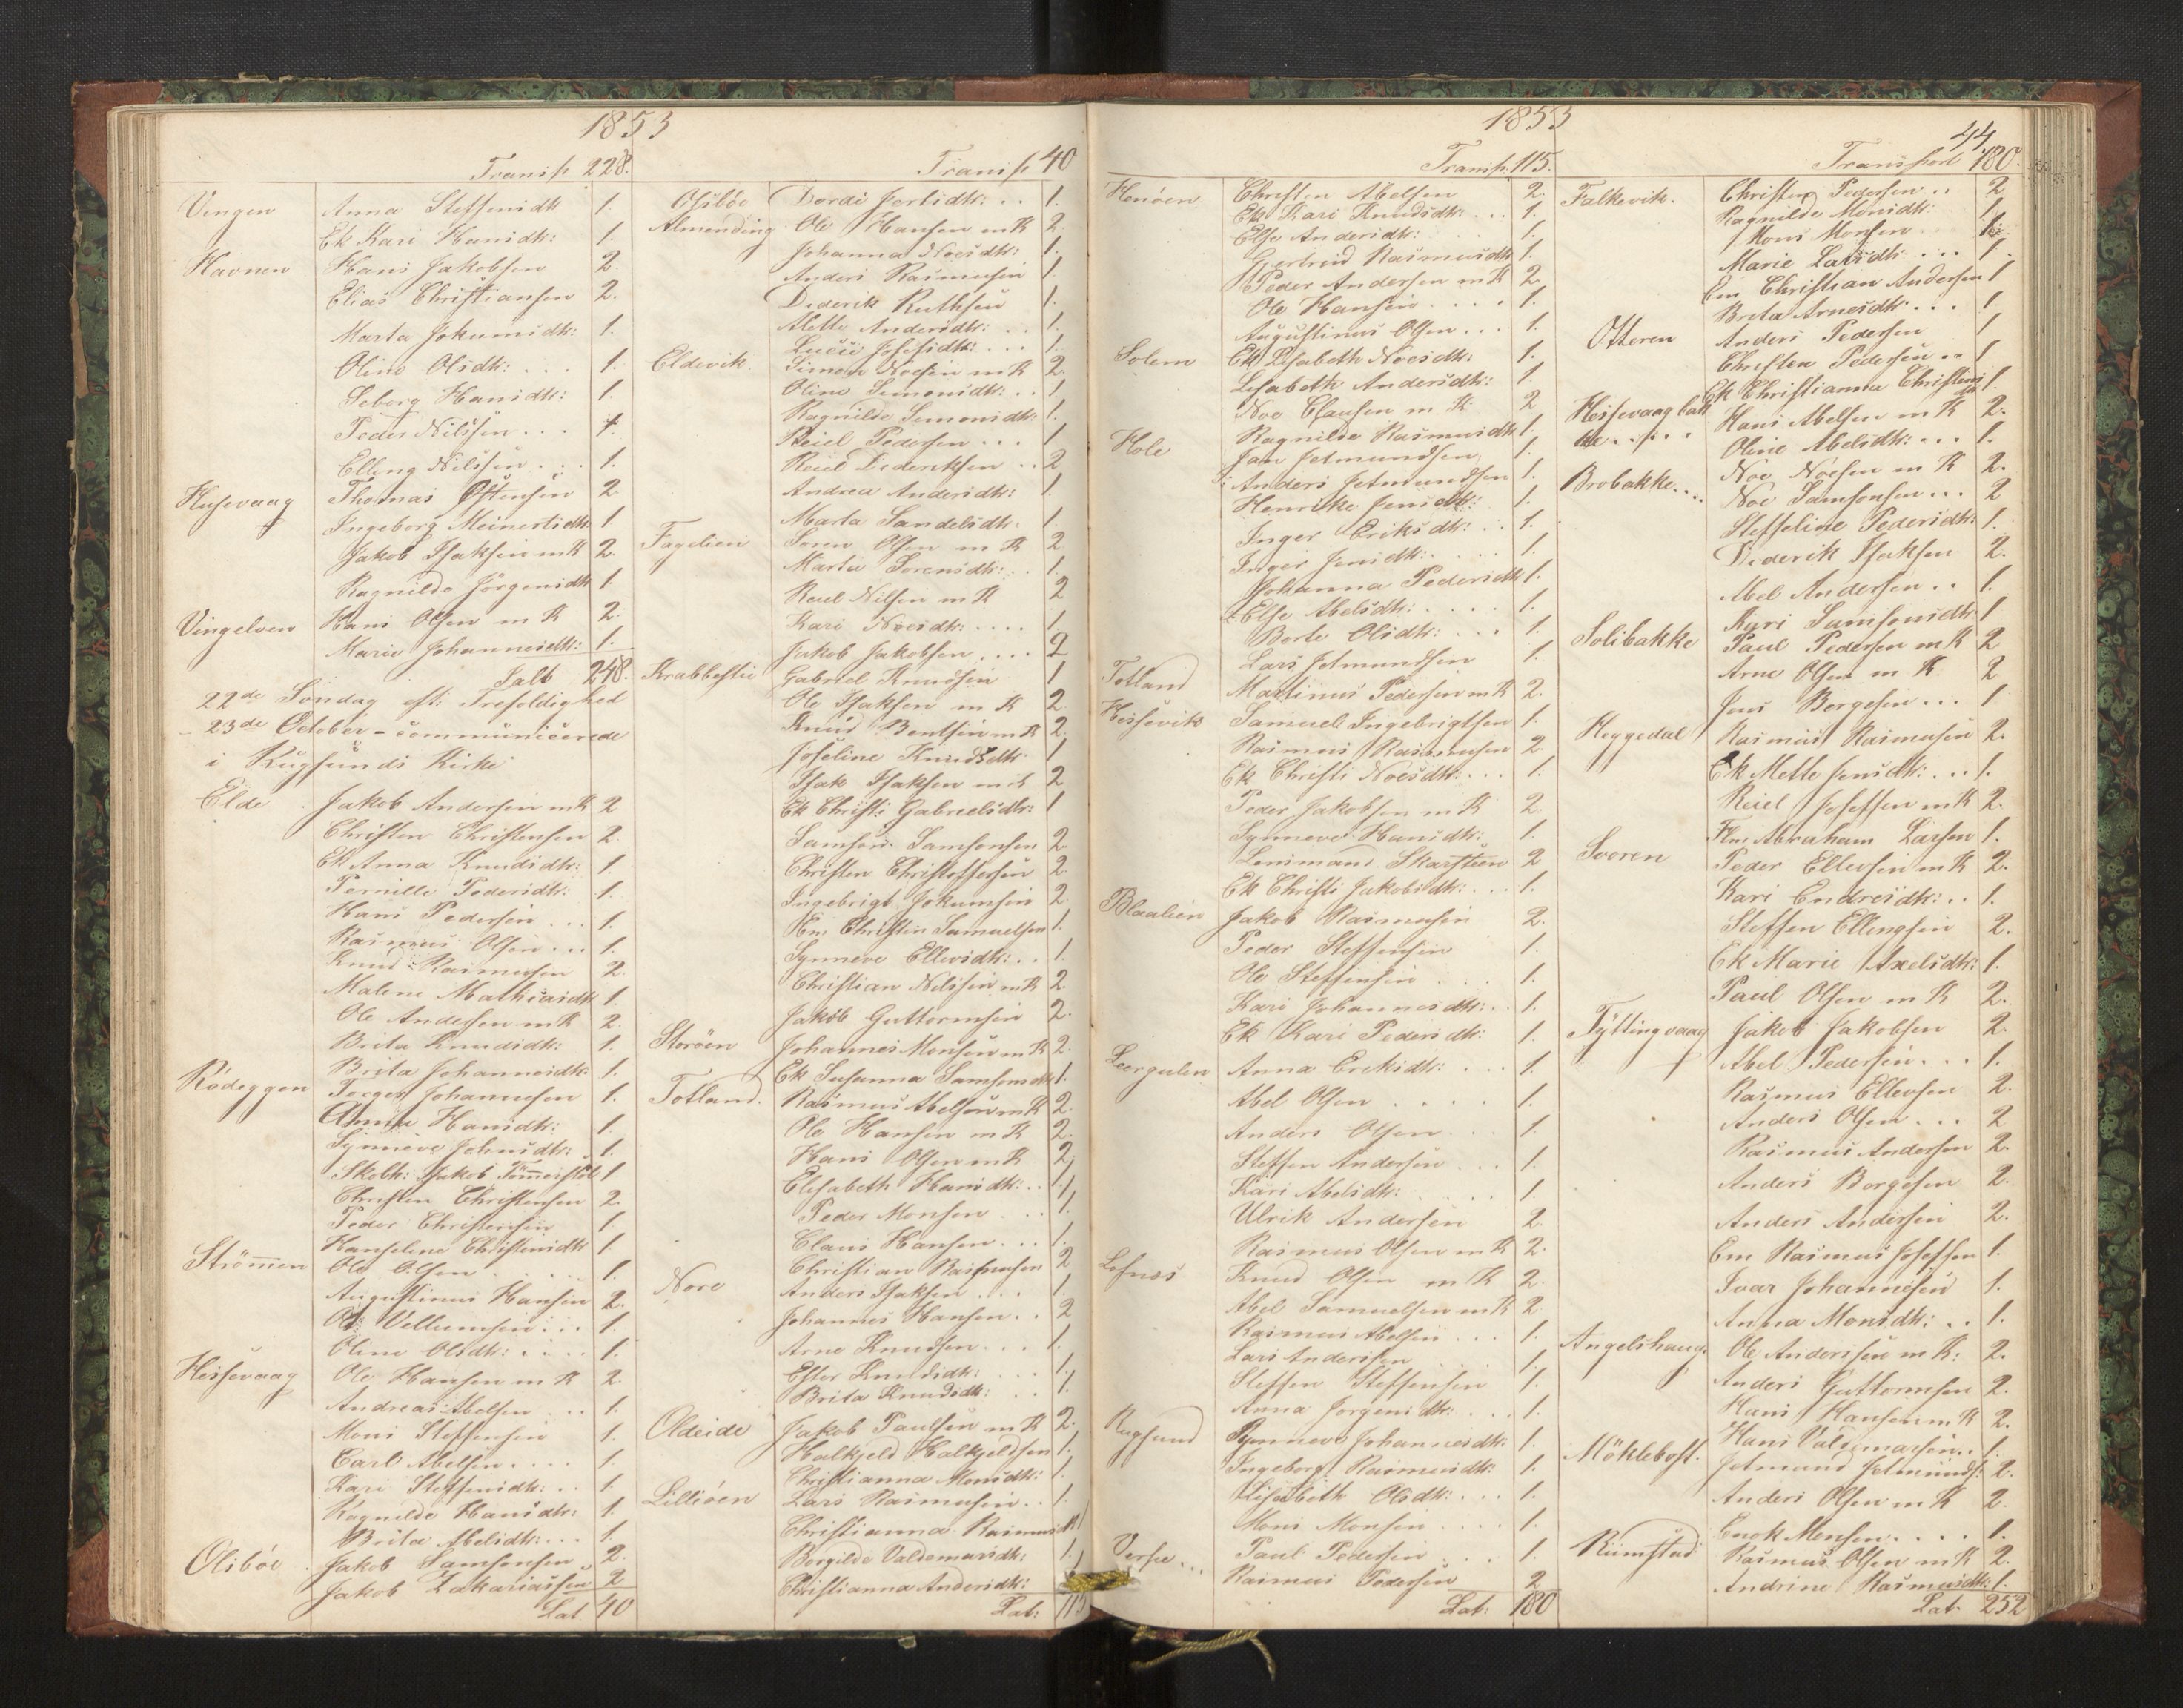 1853
Transp 228.
Vingen Anna Steffensdtr 1.
Ek Kari Hansdtr: 1.
Havnen Hans Jakobsen 2.
Elias Christiansen 2.
Marta Jokumsdtr: 1.
Oline Olsdtr: . . . 1.
Seborg Hansdtr: 1.
Peder Nilssen . . . 1.
Elling Nilssen . . . 1.
Husevaag Thomas Østensen 2
Ingeborg Meinertsdtr 1
Jakob Isaksen m K 2.
Ragnilde Jörgensdtr 1
Vingelven Hans Olsen m K 2.
Marie Johannesdtr: 1.
Salv 248.
22de Søndag eft: Trefoldighed
- 23de October - communicerede
i Rugsunds Kirke
Elde . Jakob Andersen m K 2
Christen Christensen 2.
Ek Anna Knudsdtr: 1.
Pernille Pedersdtr: 1.
Hans Pedersen . . . 1.
Rasmus Olsen . . . 1.
Knud Rasmusen 2.
Malene Mathiasdtr 1.
Ole Andersen m K 2.
Brita Knudsdtr: 1.
Rödeggen Brita Johannesdtr: 1.
Torger Johannesen 1.
Anna Hansdtr: 1.
Synneve Johnsdtr: 1.
Skolh: Jakob 1
Christen Christensen 2.
Peder Christensen 1.
Hanseline Christensdtr 1.
Strömmen Ole Olsen . . . 1.
Augustinus Hansen 2.
Ole Vellumsen . . . 1.
Oline Olsdtr: . . . . 1.
Hessevaag Ole Hansen m K 2.
Andreas Abelsen . . 1.
Mons Steffensen 1.
Carl Abelsen . . . . 1.
Kari Steffensdtr: . . 1.
Ragnilde Hansdtr: 1.
Brita Abelsdtr: . . . 1.
Olsböe . Jakob Samsonsen . 2.
Jakob Zakariassen 2
Lat 40
Transp 40
Olsböe Dordi Jerlsdtr: . . 1.
Almending Ole Hansen m K 2.
Johanna Noesdtr: 1.
Anders Rasmusen 1.
Diderik Ruthsen 1.
Alette Andersdtr: . . 1.
Lucie Josefsdtr: . . . 1.
Eldevik Simon Noesen m K 2
Oline Simonsdtr: . . 1.
Ragnilde Simonsdtr: 1.
Reiel Pedersen . . . 1
Reiel Dideriksen . . 2
Andrea Andersdtr: 1
Marta Sandelsdtr: 1.
Fagelien Soren Olsen m K 2
Marta Sorensdtr: . . 1.
Reiel Nilsen m K 2
Kari Noesdtr: . . . . 1.
Jakob Jakobsen . . . . 2
Krabbestie Gabriel Knudsen 1
Ole Isaksen m K 2
Knud Bentsen m K 2.
Joseline Knudsdtr 1
Isak Isaksen m K 2
Ek Christi: Gabrielsdtr: 1
Samson Samsonsen 2
Christen Christoffersen 2
Ingebrigt Jokumsen 2
Em Christen Samuelsen 1.
Synneve Ellevsdtr: . . 1.
Christian Nilssen m K 2
Jakob Guttormsen 2.
Storöen Johannes Monsen m K 2.
Ek Susanna Samsonsdtr 1.
Totland. Rasmus Abelsen m K 2.
Ole Hansen m K 2.
Hans Olsen m K 2.
Elisabeth Hansdtr: . . 1.
Peder Monsen . . . 1.
Claus Hansen . . . 1.
Christian Rasmusen 2
Nore Anders Isaksen . . . 1.
Johannes Hansen . . 2
Arne Knudsen . . . 1.
Ester Knudsdtr: . . . 1.
Brita Knudsdtr: . . 1.
Oldeide Jakob Paulsen m K 2.
Halkjeld Halkjeldsen 1.
Christianna Monsdtr: 1.
Lilliöen Lars Rasmusen . . 1.
Christianna Rasmusdtr 1
Borgilde Valdemarsdtr: 1.
Christianna Andersdtr: 1
Lat: 115
1853
Transp. 115.
Henöen Christen Abelsen 2.
Ek Kari Knudsdtr: . . . 1.
Else Andersdtr: 1.
Gertrud Rasmusdtr 1.
Peder Andersen m K 2.
Ole Hansen . . . . 1.
Augustinus Olsen . . . 1.
Solem Ek Lisabeth Noesdtr: 1.
Lisabeth Andersdtr: 1.
Noe Clausen m K 2
Hole Ragnilde Rasmusdtr 1.
Jan Jetmundsen 1.
Anders Jetmundsen 1.
Henrikke Jensdtr: 1.
Inger Eriksdtr: . . 1.
Inger Jensdtr: . . . . 1.
Johanna Pedersdtr 1.
Else Abelsdtr: . . . . 1.
Berte Olsdtr: . . . 1.
Lars Jetmundsen 1.
Totland Martinus Pedersen m K 2.
Hessevik Samuel Ingebrigtsen 1.
Rasmus Rasmusen 2
Ek Christi Noesdtr: . . . 1.
Peder Jakobsen m K 2.
Synneve Hansdtr: 1.
Lensmand Skarsteen 2
Ek Christi Jakobsdtr: . . . 1.
Blaalien Jakob Rasmusen 2.
Peder Steffensen 1.
Ole Steffensen . . . 1.
Kari Johannesdtr: . . 1.
Ek Kari Pedersdtr: 1.
Leergulen Anna Eriksdtr: . . . 1.
Abel Olsen . . . . . 1.
Anders Olsen . . . 1.
Steffen Andersen . . . 1.
Kari Abelsdtr: . . . . . 1.
Ulrik Andersen 2.
Rasmus Olsen m K 2.
Lofnæs Knud Olsen m K 2.
Abel Samuelsen m K 2
Rasmus Abelsen . . . 1.
Lars Andersen . . . 1.
Steffen Steffensen 1.
Anna Jorgensdtr: . . . 1.
Rugsund Synneve Johannesdtr: 1.
Ingeborg Rasmusdtr: 1.
Lisabeth Olsdtr: . . . 1.
Mons Monsen . . . . 1.
Paul Pedersen . . . 1.
Rasmus Pedersen 2
Lat: 180
44
Transport 180.
Falkevik. Christen Pedersen . . 2
Ragnilde Monsdtr: 1
Mons Monsen 1.
Marie Larsdtr: . . . 1.
Em Christian Andersen 1
Brita Arnesdtr: . . . 1.
Otteren Anders Pedersen 1
Christen Pedersen . . 1
Ek Christianna Christensdtr 1.
Hessevaagbak Hans Abelsen m K 2.
ke . . . . Oline Abelsdtr: . . . 1.
Brobakke . . . . Noe Noesen m K 2.
Noe Samsonsen . . . 2
Steffeline Pedersdtr: 1.
Diderik Isaksen 2.
Abel Andersen . . 1.
Kari Samsonsdtr: 1
Solibakke Paul Pedersen m K 2
Arne Olsen m K 2
Jens Borgesen . . . 1
Heggedal Rasmus Rasmusen 2.
Ek Mette Jensdtr: . . . 1.
Reiel Josefsen m K 2.
Svoren Em Abraham Larsen 1.
Peder Ellevsen m K 2.
Kari Endresdtr: . . 1.
Steffen Ellingsen 2.
Ek Marie Axelsdtr: 1.
Paul Olsen m K 2.
Tyttingvaag Jakob Jakobsen 2.
Abel Pedersen . . . 1.
Rasmus Ellevsen 2.
Anders Olsen . . . 2
Rasmus Andersen 2.
Anders Borgesen 2.
Anders Andersen 2.
Em Rasmus Josefsen 1.
Ivar Johannesen 1.
Anna Monsdtr: . . 1.
Angelshaug Ole Andersen m K: 2.
Anders Guttormsen 2.
Hans Hansen m K 2.
Hans Valdemarsen . . 1.
Möklebost. Jetmund Jetmunds: 2.
Anders Olsen m K 2.
Enok Monsen . . . . 1.
Rimstad Rasmus Olsen m K 2.
Andrine Rasmusdtr: 1.
Lat 252